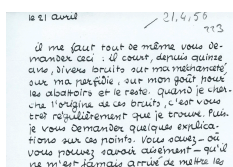 le 21 avril
21.4.56
il me faut tout de même vous de-
mander ceci : il court, depuis quinze
ans, divers bruits sur ma méchanceté,
sur ma perfidie, sur mon goût pour
les abattoirs et le reste. Quand je cher-
che l'origine de ces bruits, c'est vous
très régulièrement que je trouve. Puis-
je vous demander quelques explica-
tions sur ces points. Vous savez - où
vous pouvez savoir aisément - qu'il
ne m'est jamais arrivé de mettre les